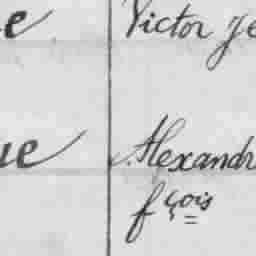 e Victor Je
ue Alexandr
fçois